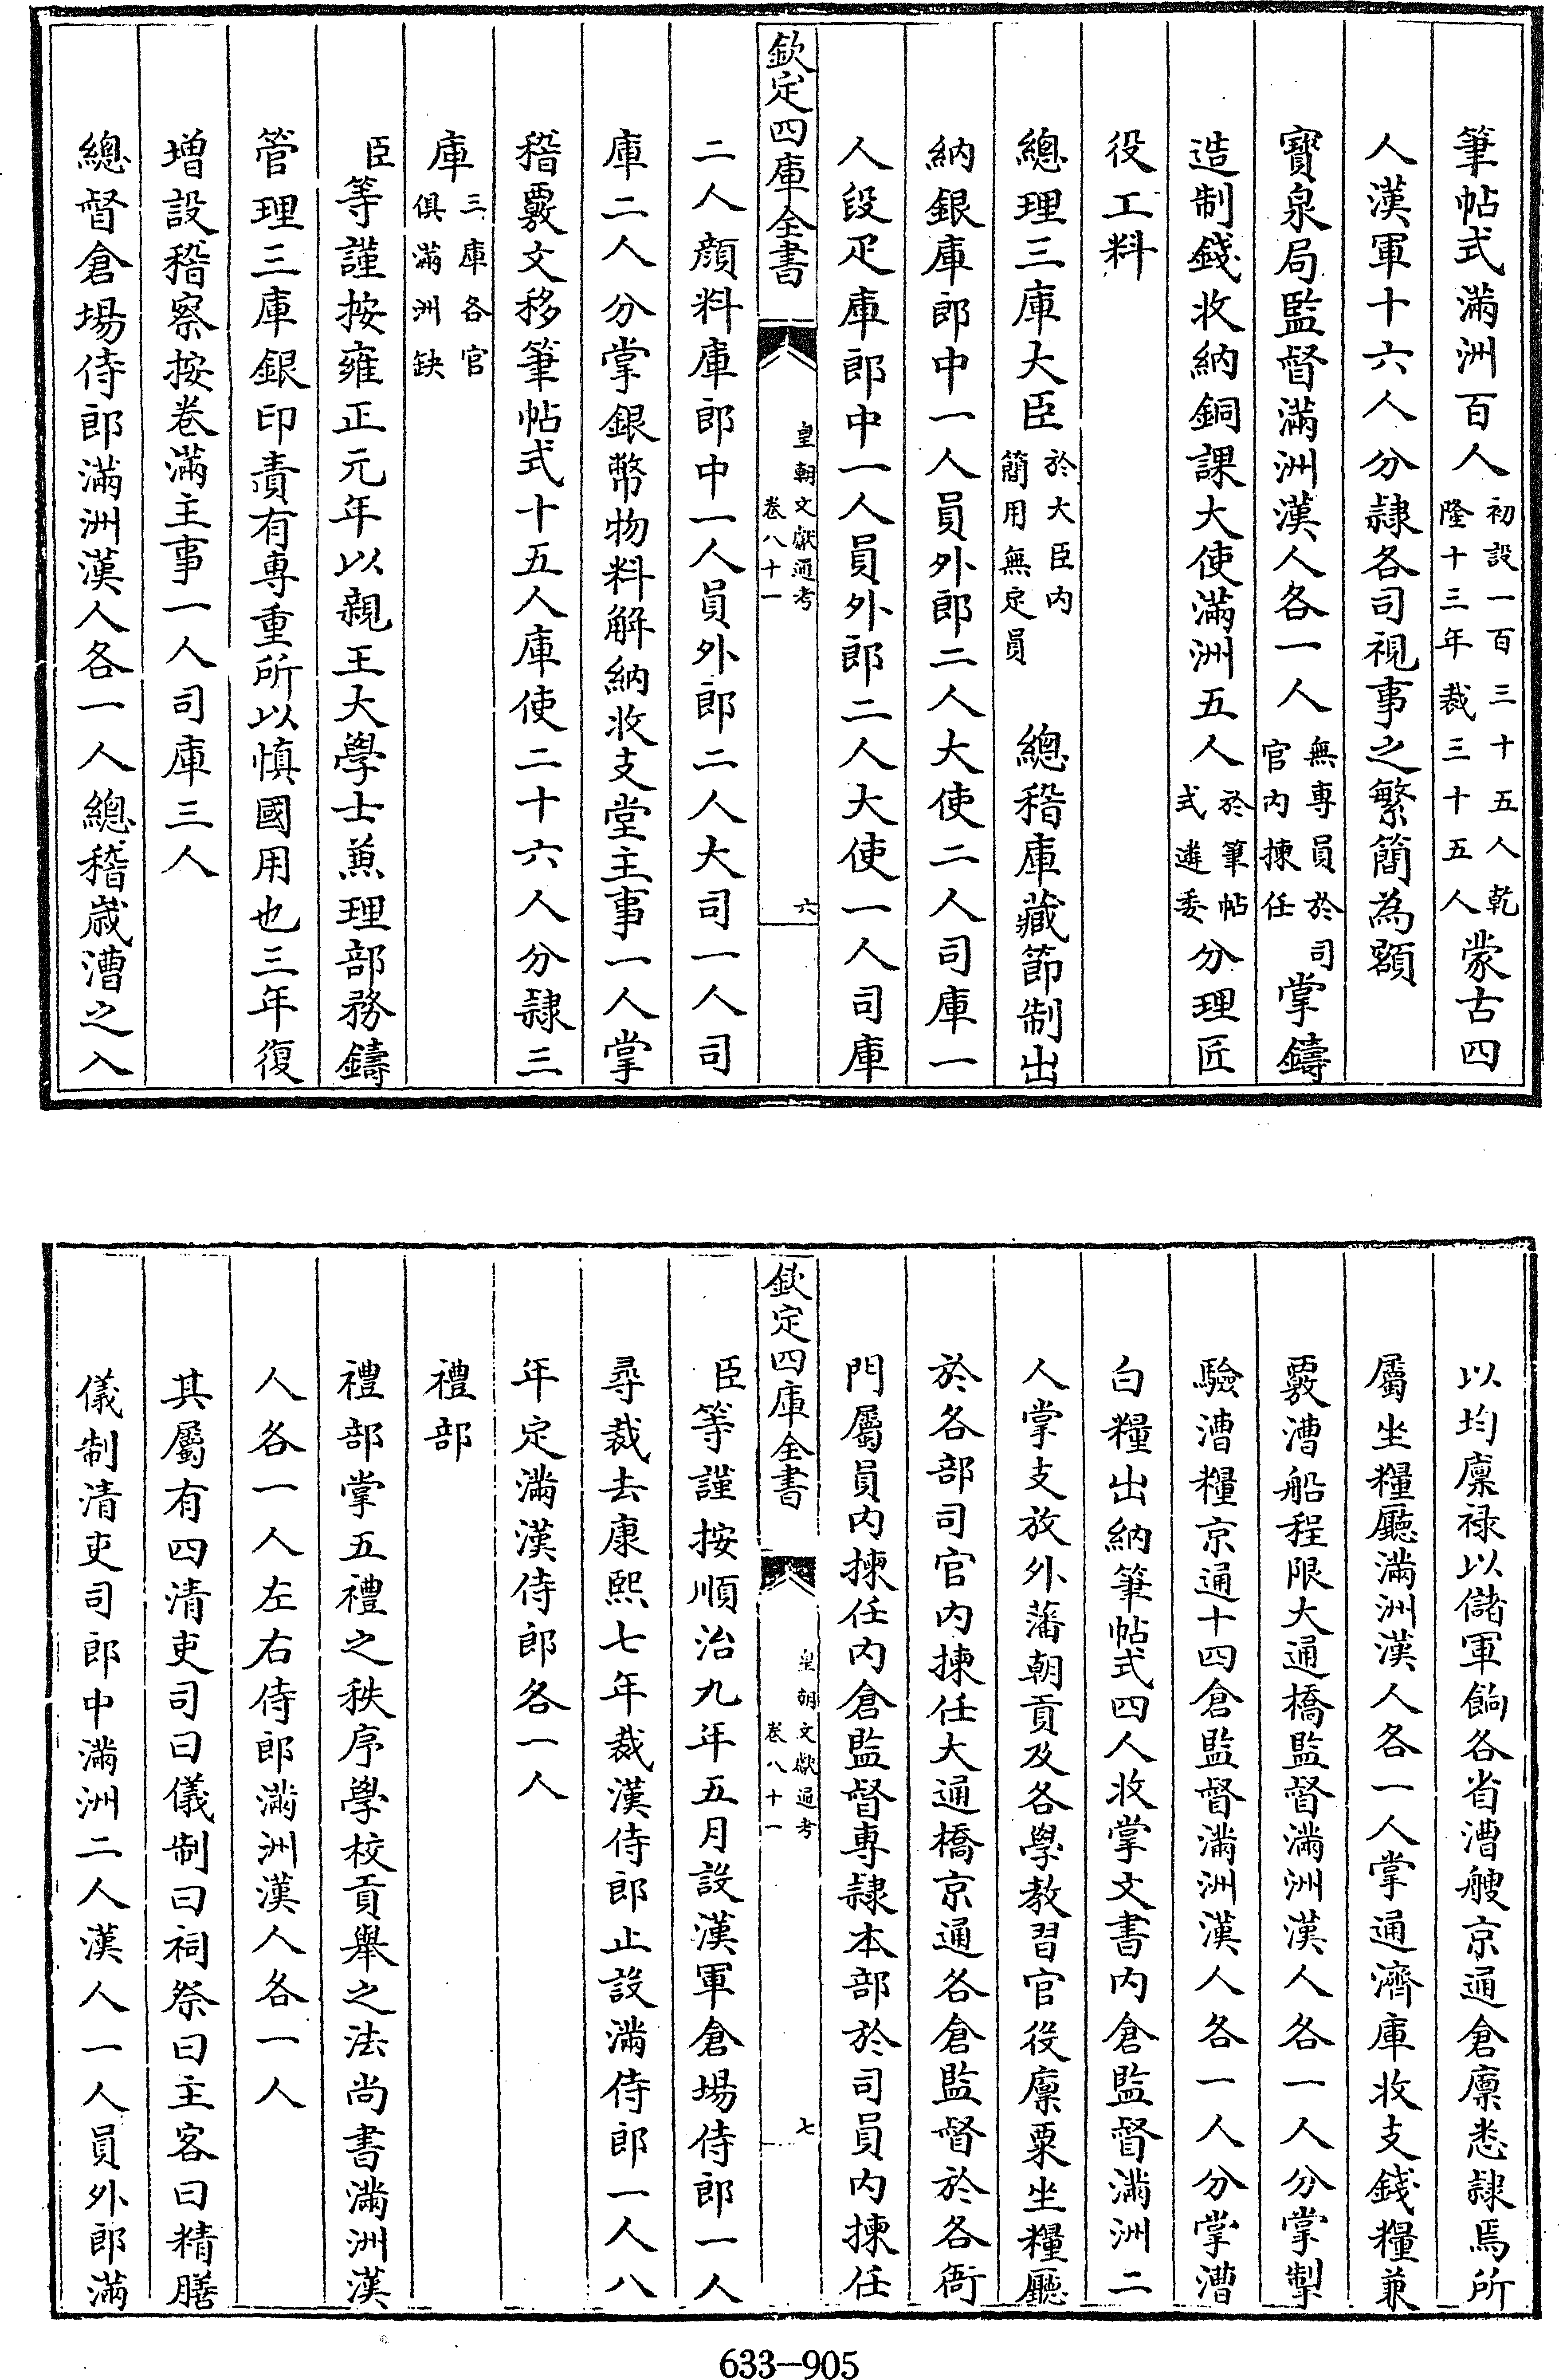 筆帖式滿洲百人初設一百三十五人乾隆十三年裁三十五人蒙古四
人漢軍十六人分隸各司視事之繁簡為額
寳泉局監督滿洲漢人各一人無專員於司官內揀任掌鑄
造制錢收納銅課大使滿洲五人於筆帖式遴委分理匠
役工料
總理三庫大臣於大臣內簡用無定員　總稽庫藏節制出
納銀庫郎中一人員外郎二人大使二人司庫一
人段疋庫郎中一人員外郎二人大使一人司庫
欽定四庫全書　皇朝文獻通考卷八十一　六
二人顔料庫郎中一人員外郎二人大司一人司
庫二人分掌銀幣物料解納收支堂主事一人掌
稽覈文移筆帖式十五人庫使二十六人分隸三
庫三庫各官俱滿洲缺
臣等謹按雍正元年以親王大學士兼理部務鑄
管理三庫銀印責有專重所以慎國用也三年復
增設稽察按卷滿主事一人司庫三人
總督倉場侍郎滿洲漢人各一人總稽歲漕之入
以均廩禄以儲軍餉各省漕艘京通倉廩悉隸焉所
屬坐糧廳滿洲漢人各一人掌通濟庫收支錢糧兼
覈漕船程限大通橋監督滿洲漢人各一人分掌掣
驗漕糧京通十四倉監督滿洲漢人各一人分掌漕
白糧出納筆帖式四人收掌文書內倉監督滿洲二
人掌支放外藩朝貢及各學教習官役廩粟坐糧廳
於各部司官內揀任大通橋京通各倉監督於各衙
門屬員內揀任內倉監督專隸本部於司員內揀任
欽定四庫全書　皇朝文獻通考卷八十一　七
臣等謹按順治九年五月設漢軍倉場侍郎一人
尋裁去康熙七年裁漢侍郎止設滿侍郎一人八
年定滿漢侍郎各一人
禮部
禮部掌五禮之秩序學校貢舉之法尚書滿洲漢
人各一人左右侍郎滿洲漢人各一人
其屬有四清吏司曰儀制曰祠祭曰主客曰精膳
儀制清吏司郎中滿洲二人漢人一人員外郎滿
633—905